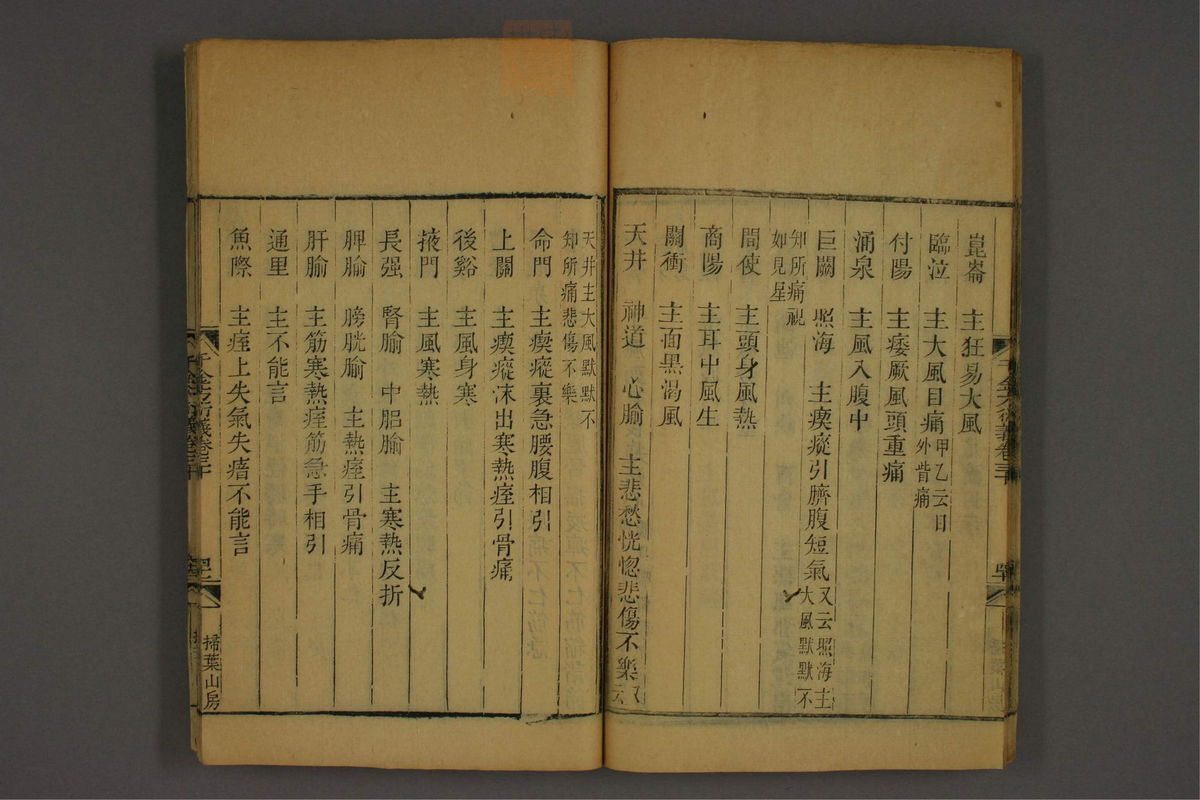 崑崙　主狂易大風
臨泣　主大風目痛甲乙云目外眥痛
付陽　主痿厥風頭重痛
涌泉　主風入腹中
巨闕　照海　主瘈瘲引臍腹短氣又云照海主大風默默不
知所痛視如見星
間使　主頭身風熱
商陽　主耳中風生
關衝　主面黑渴風
天井　神道　心腧　主悲愁恍惚悲傷不樂又云
天井主大風默默不知所痛悲傷不樂
命門　主瘈瘲裏急腰腹相引
上關　主瘈瘲沫出寒熱痓引骨痛
後谿　主風身寒
掖門　主風寒熱
長强　腎腧　中膂腧　主寒熱反折
脾腧　膀胱腧　主熱痓引骨痛
肝腧　主筋寒熱痓筋急手相引
通里　主不能言
魚際　主痓上失氣失瘖不能言
千金方衍義卷三十
掃葉山房